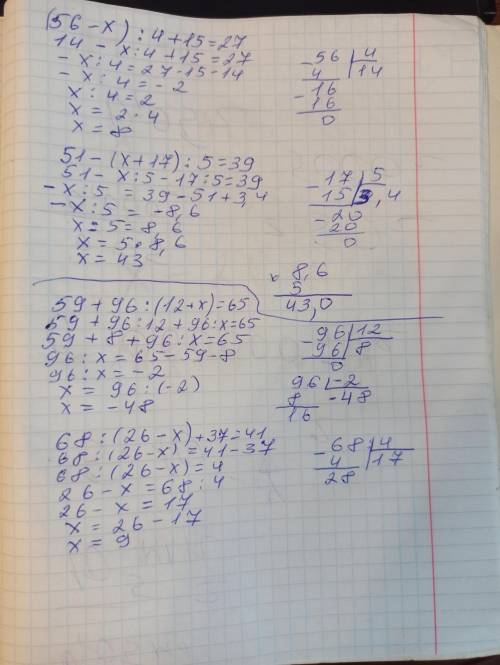 (56-x):4+15=27
14-x:4+15=27
-x:4=27-15-14
-x:4=-2
x:4=2
x=2·4
x=8
-56|4
4 14
-16
16
0
51-(x+17):5=39
51-x:5-17:5=39
-x:5=39-51+3,4
-x:5=-8,6
x:5=8,6
x=5·8,6
x=43
-17|5
15 3,4
-20
20
0
x 8,6
5
43,0
59+96:(12+x)=65
59+96:12+96:x=65
59+8+96:x=65
96:x=65-59-8
96:x=-2
x=96:(-2)
x=-48
-96|12
96 8
0
96|-2
8 -48
16
68:(26-x)+37=41
68:(26-x)=41-37
68:(26-x)=4
26-x=68:4
26-x=17
x=26-17
x=9
-68|4
4 17
28